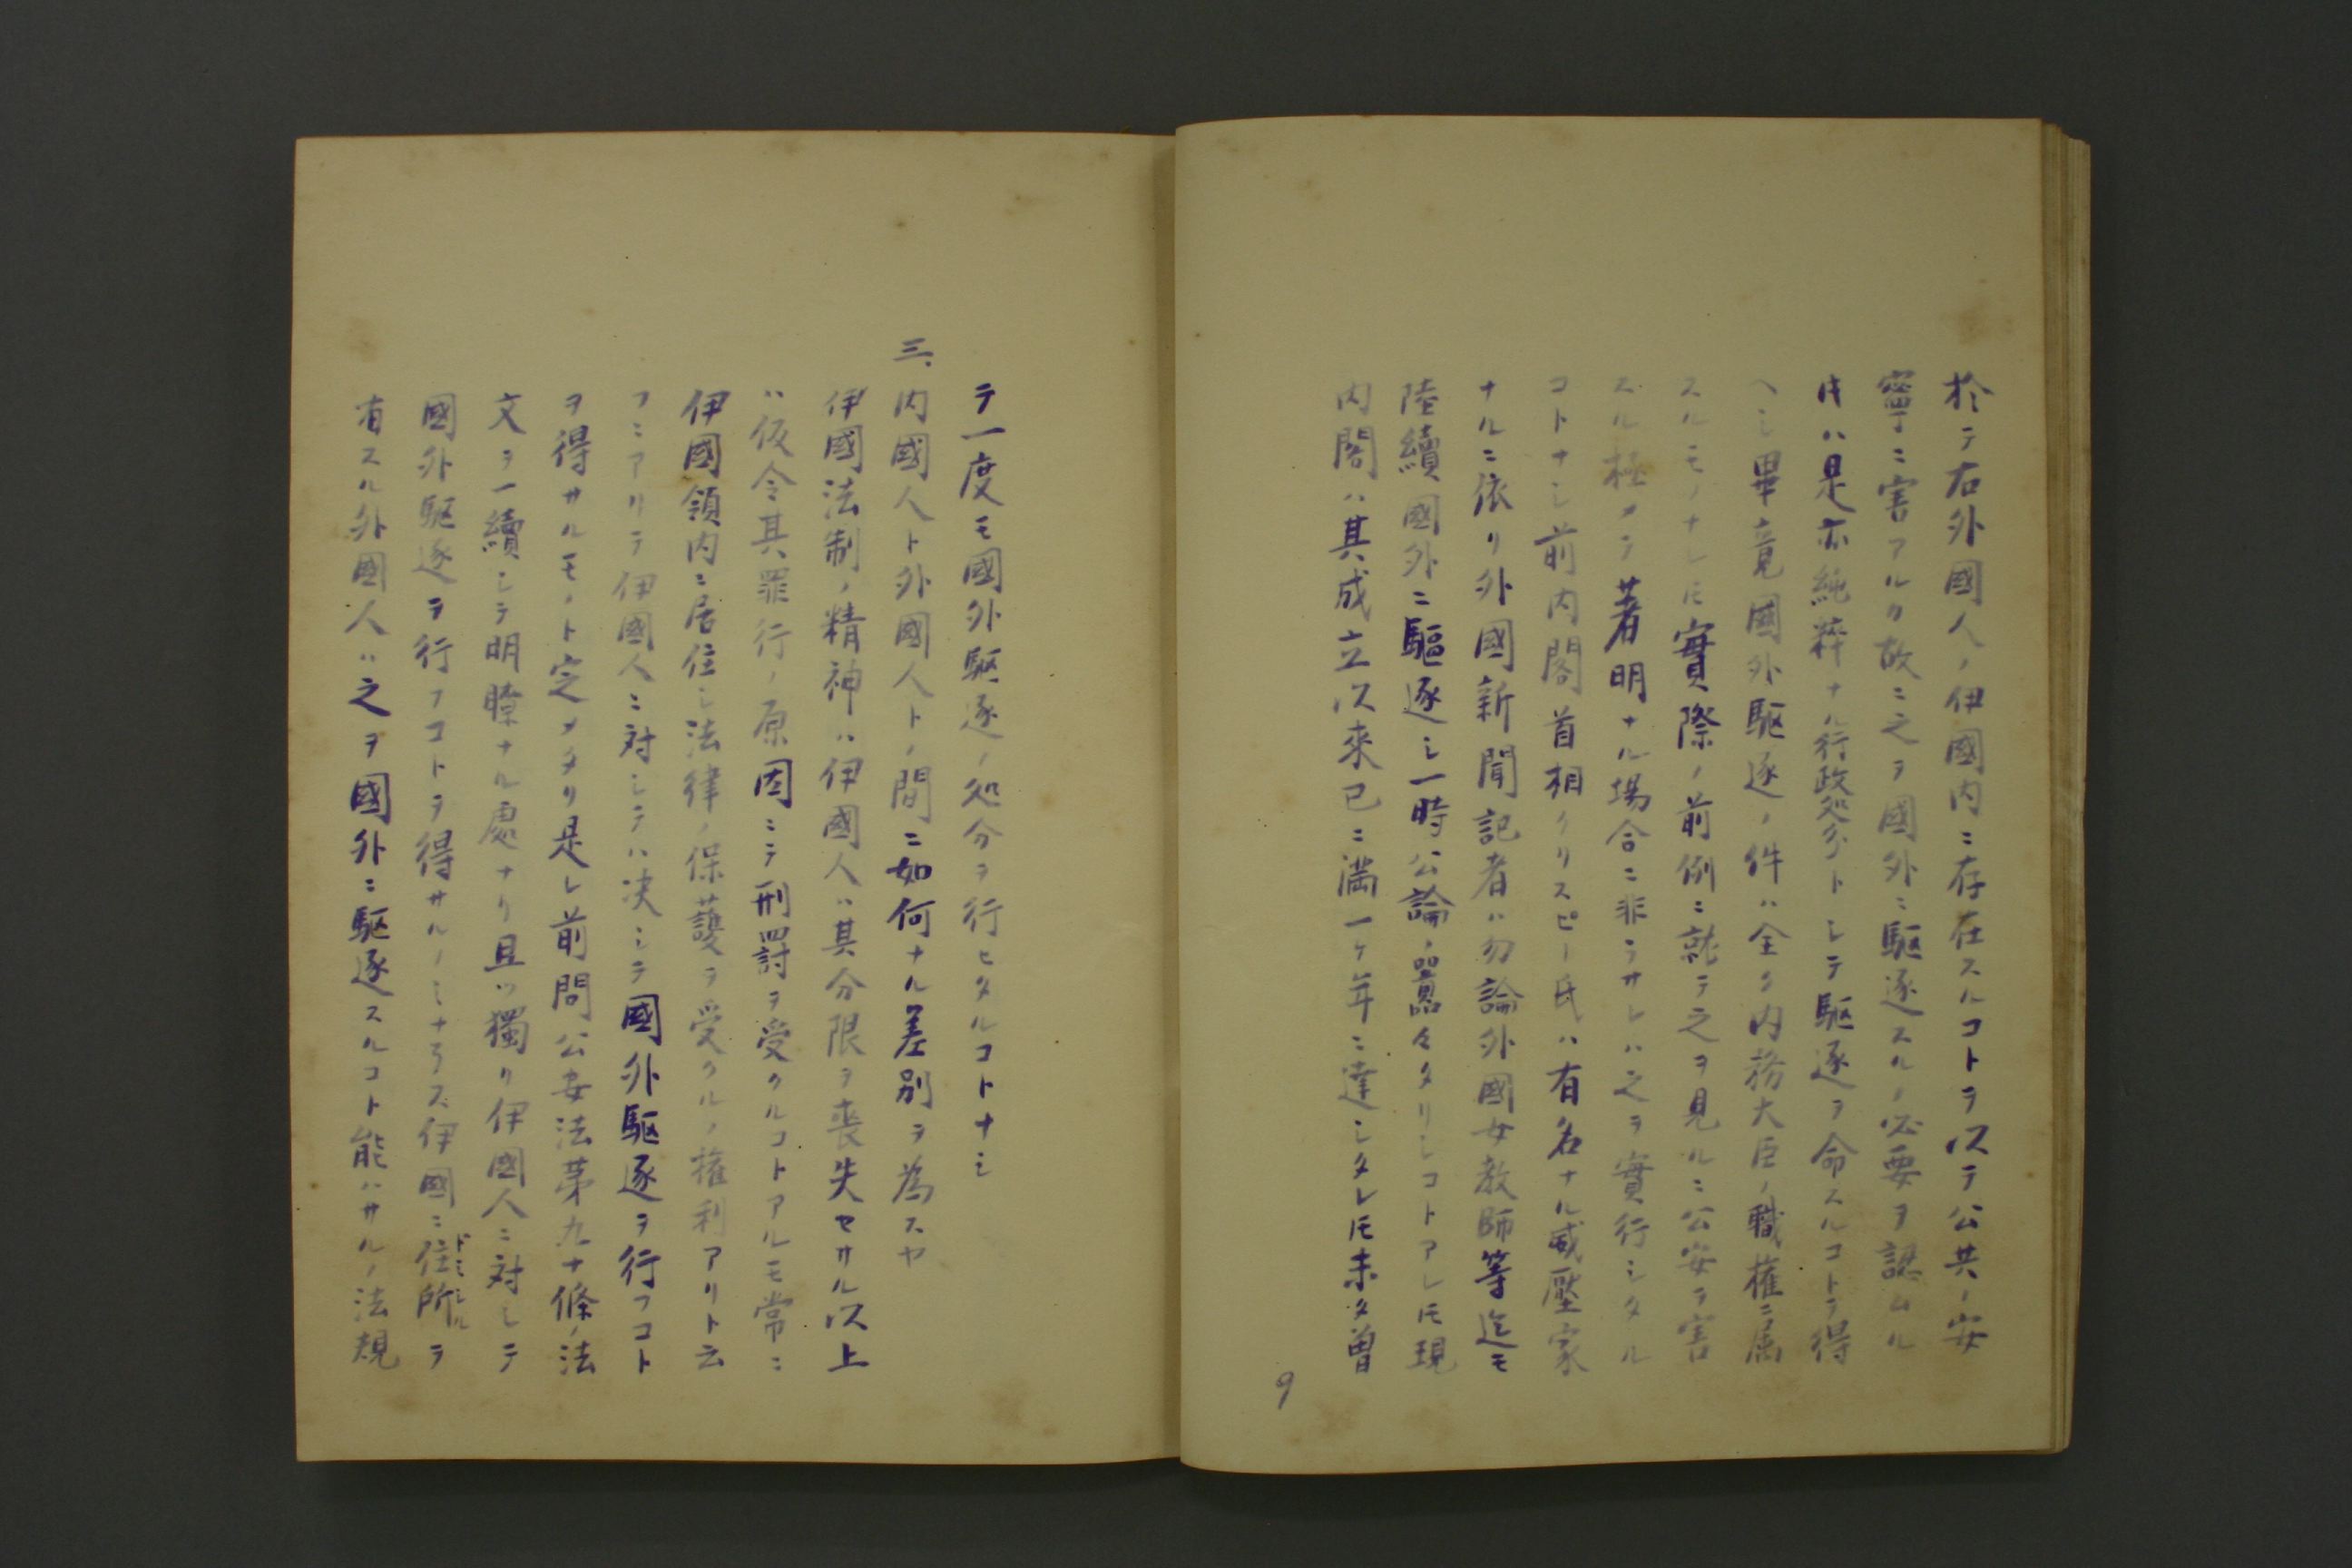 於テ右外國人ノ伊國内ニ存在スルコトヲ以テ公共ノ安
寧ニ害アルカ故ニ之ヲ國外ニ駆逐スルノ必要ヲ認ムル
片ハ是亦純粹ナル行政処分トシテ駆逐ヲ命スルコトヲ得
ヘシ畢竟國外駆逐ノ件ハ全ク内務大臣ノ職權ニ属
スルモノナレ𪜈實際ノ前例ニ就テ之ヲ見ルニ公安ヲ害
スル極メテ著明ナル場合ニ非ラサレハ之ヲ實行シタル
コトナシ前内閣首相クリスピー氏ハ有名ナル威壓家
ナルニ依リ外國新聞記者ハ勿論外國女教師等迄モ
陸續國外ニ驅逐シ一時公論ノ囂々タリシコトアレ𪜈現
内閣ハ其成立以來已ニ満一ケ年ニ達シタレ𪜈未タ曽
9
テ一度モ國外駆逐ノ処分ヲ行セタルコトナシ
三、内國人ト外國人トノ間ニ如何ナル差別ヲ為スヤ
伊國法制ノ精神ハ伊國人ハ其分限ヲ喪失セサル以上
ハ仮令其罪行ノ原因ニテ刑罰ヲ受クルコトアルモ常ニ
伊國領内ニ居住シ法律ノ保護ヲ受クルノ權利アリト云
フニアリテ伊國人ニ対シテハ决シテ國外駆逐ヲ行フコト
ヲ得サルモノト定メタリ是レ前問公安法第九十條ノ法
文ヲ一續シテ明瞭ナル處ナリ且ツ獨リ伊國人ニ対シテ
國外駆逐ヲ行フコトヲ得サルノミナラス伊國ニ住所ドミシルヲ
有スル外國人ハ之ヲ國外ニ駆逐スルコト能ハサルノ法規